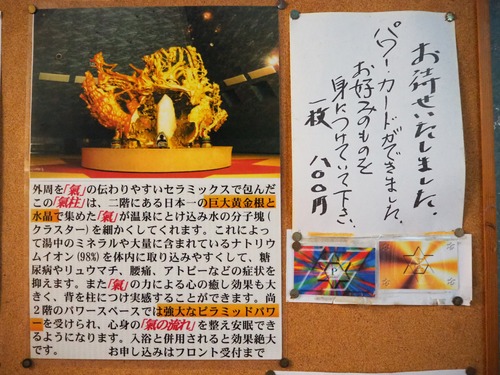 外周を「氣」の伝わりやすいセラミックスで包んだ
この「氣柱」は、二階にある日本一の巨大黄金根と
水晶で集めた「氣」が温泉にとけ込み水の分子塊(
クラスター)を細かくしてくれます。これによっ
て湯中のミネラルや大量に含まれているナトリウ
ムイオン(98%)を体内に取り込みやすくして、糖
尿病やリュウマチ、腰痛、アトピーなどの症状を
抑えます。また「氣」の力による心の癒し効果も大
きく、背を柱につけ実感することができます。尚
2階のパワースペースでは強大なピラミッドパワ
ーを受けられ、心身の「氣の流れ」を整え安眠でき
るようになります。入浴と併用されると効果絶大
です。 お申し込みはフロント受付まで
お待せいたしました。
パワー・カードができました。
お好みのものを
身につけていて下さい。
一枚 八〇〇円
P